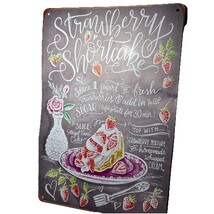 Strawberry
Shortcake
Slice 1 pint of fresh
Strawberries & add in
SUGAR
for 30 min
SLICE
Angel Food
Cake
TOP WITH
STRAWBERRY MIXTURE
& homemade
whipped
CREAM